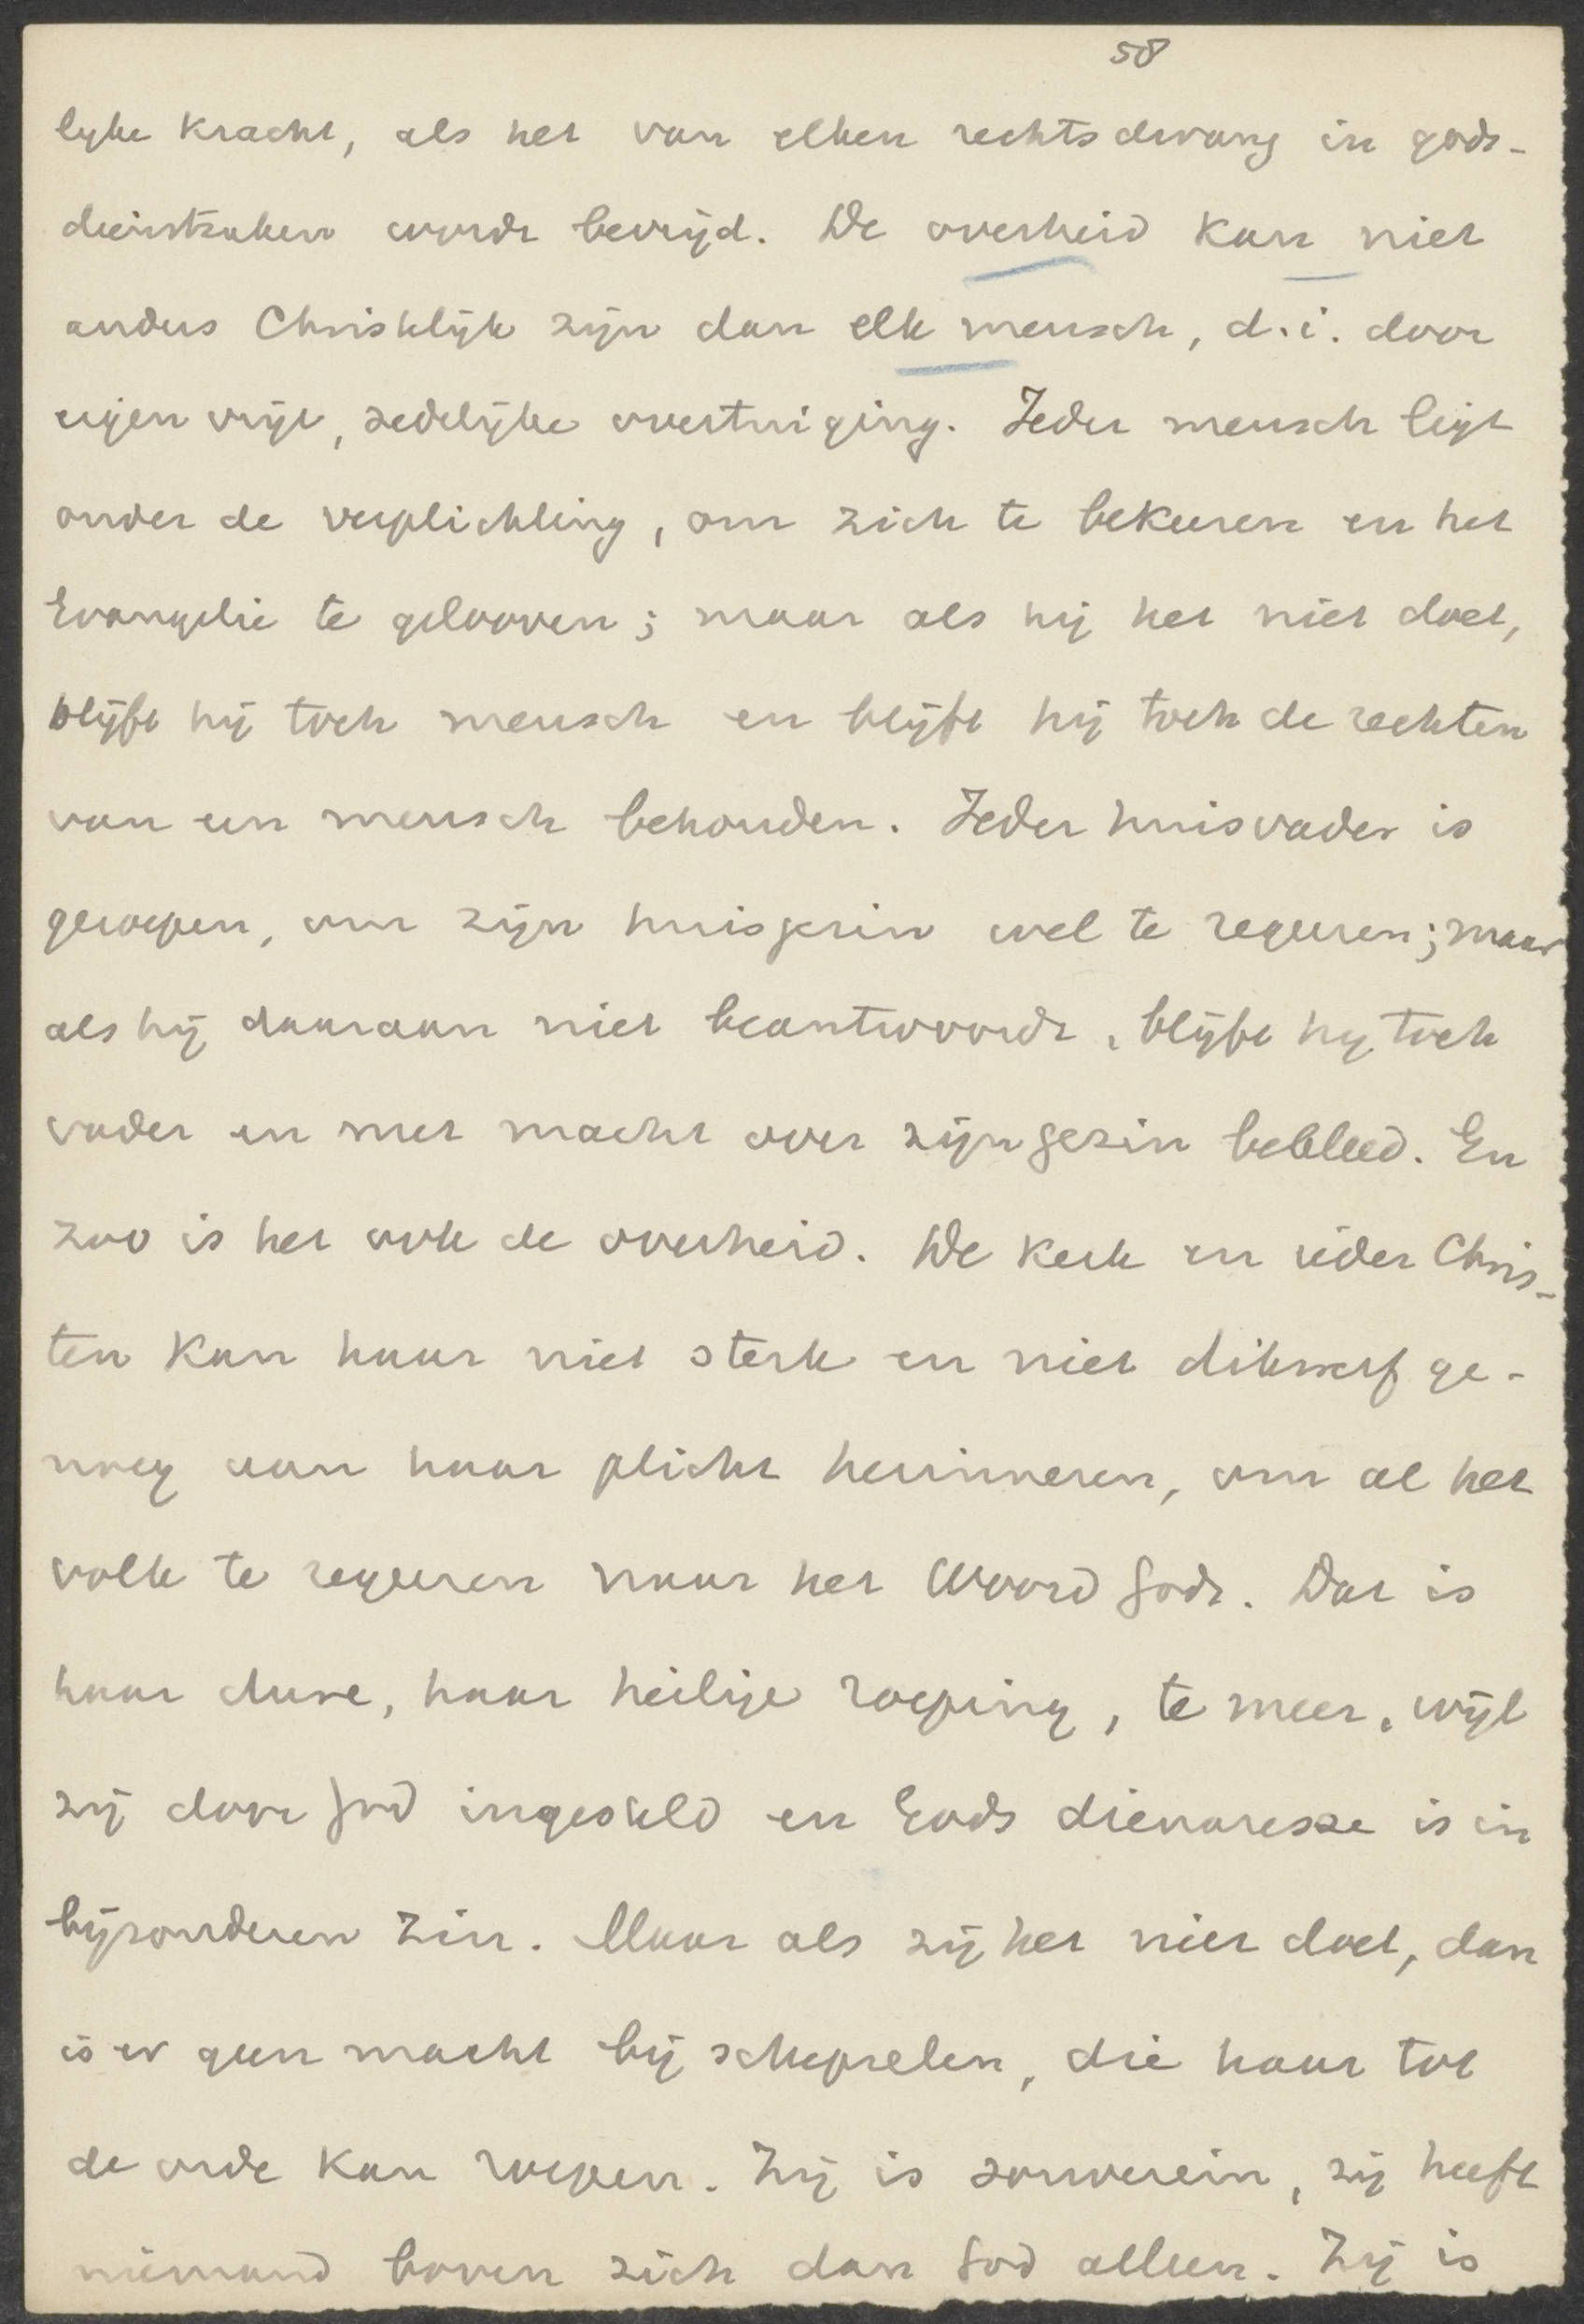 58
lyke kracht, als het van elken rechtsdwang in gods-
dienstzaken wordt bevrijd. De overheid kan niet
anders Christelijk zijn dan elk mensch, d.i. door
eigen vrije, zedelijke overtuiging. Ieder mensch ligt
onder de verplichting, om zich te bekeeren en het
Evangelie te gelooven; maar als hij het niet doet,
blijft hij toch mensch en blijft hij toch de rechten
van een mensch behouden. Ieder huisvader is
geroepen, om zijn huisgezin wel te regeeren; maar
als hij daaraan niet beantwoordt, blijft hij toch
vader en met macht over zijn gezin bekleed. En
zoo is het ook de overheid. De kerk en ieder Chris-
ten kan haar niet sterk en niet dikwerf ge-
noeg aan haar plicht herinneren, om al het
volk te regeeren naar het Woord Gods. Dat is
haar dure, haar heilige roeping, te meer, wijl
zij door God ingesteld en Gods dienaresse is in
bijzonderen zin. Maar als zij het niet doet, dan
is er geen macht bij schepselen, die haar tot
de orde kan roepen. Zij is souverein, zij heeft
niemand boven zich dan God alleen. Zij is